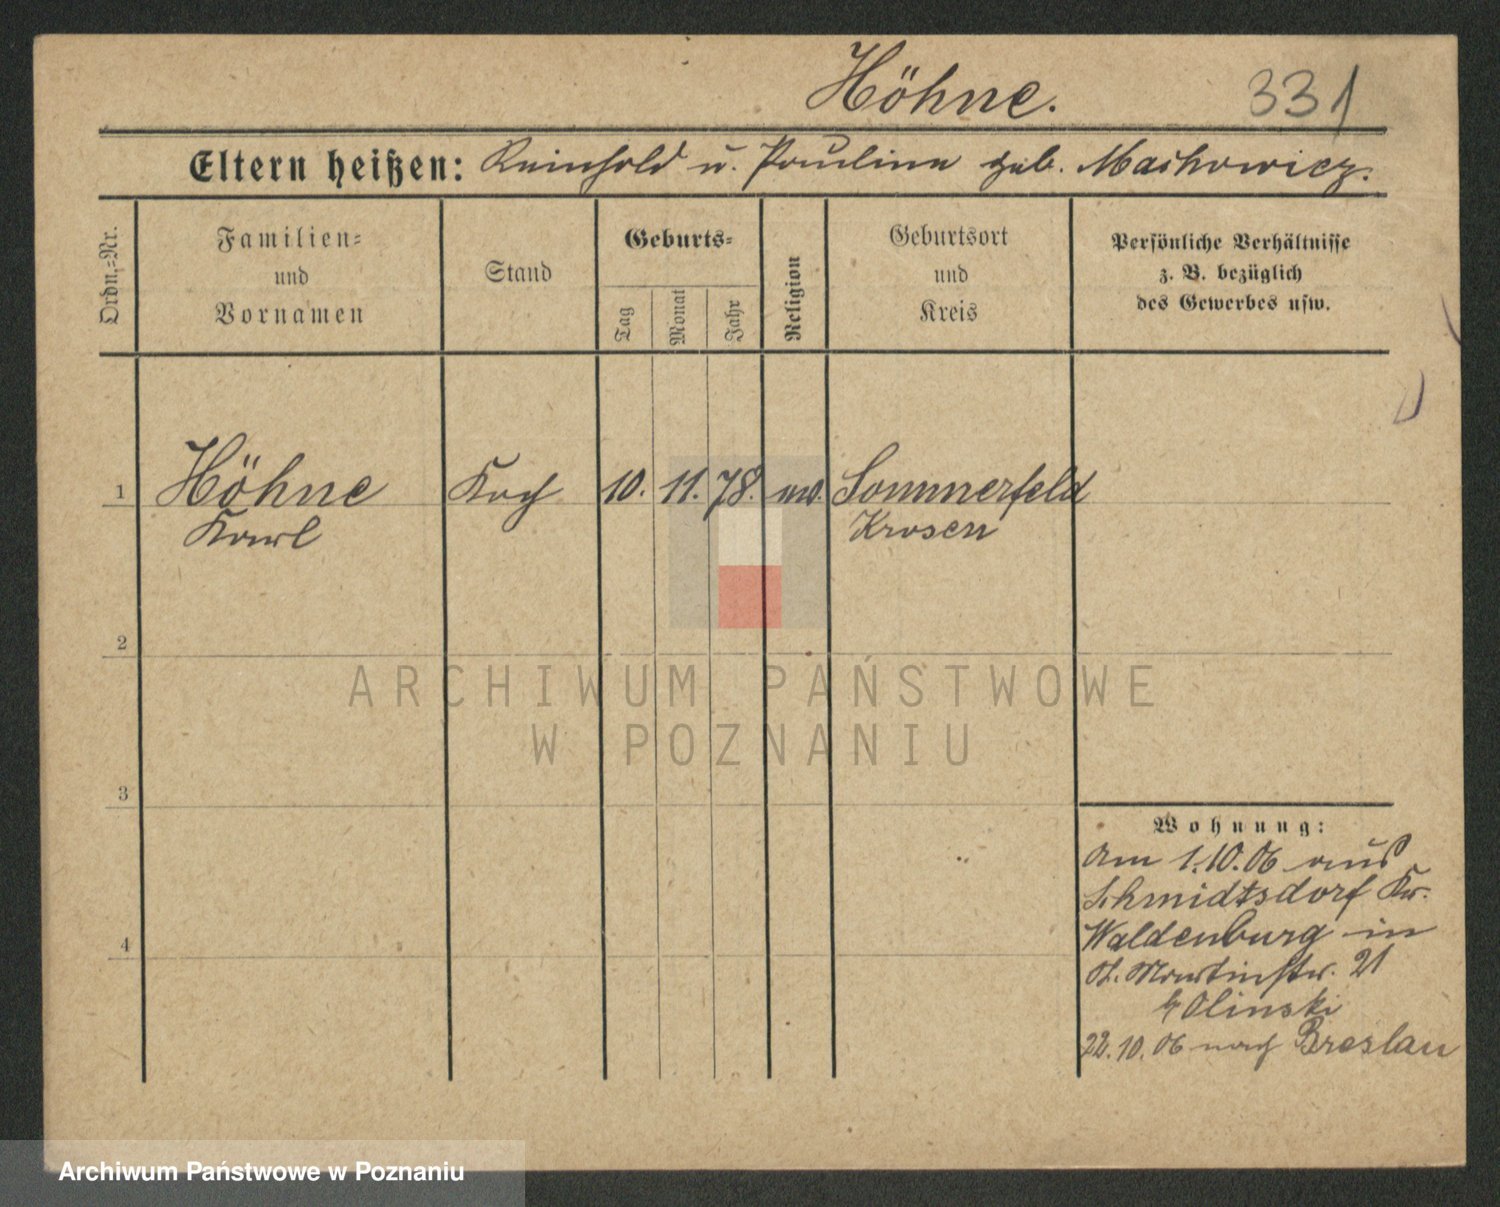 Höhne.
331
Eltern heißen: Reinhold u. Paulina geb. Maskowicz.
Ordn.=Nr.
Familien=
und
Vornamen
Stand
Geburts=
Tag
Monat
Jahr
Religion
Geburtsort
und
Kreis
Persönliche Verhältnisse
z. B. bezüglich
des Gewerbes usw.
1
Höhne
Karl
Koch
10.
11.
78.
Sommerfeld
Krosen
2
3
4
Wohnung:
Am 1.10.06 aus
Schmidtsdorf Kr.
Waldenburg in
St. Martinstr. 21
Olinski
22.10.06 nach Breslau
ARCHIWUM PAŃSTWOWE
W POZNANIU
Archiwum Państwowe w Poznaniu